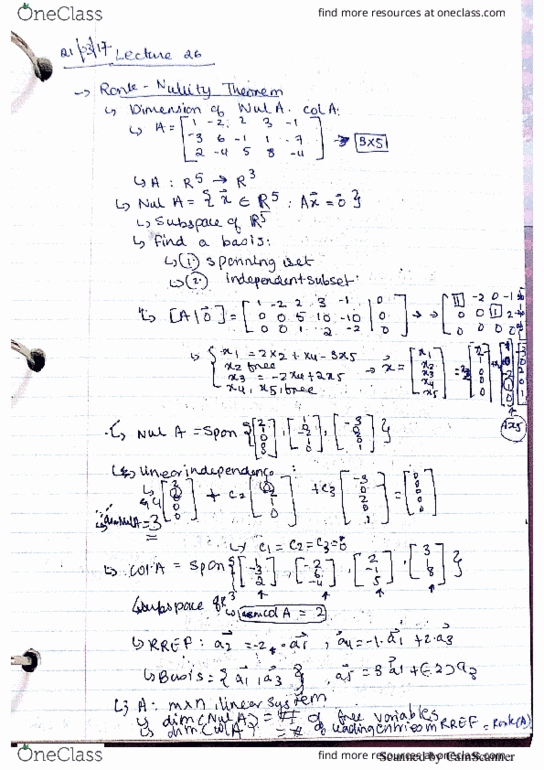 OneClass
find more resources at oneclass.com
21/03/17 Lecture 26
→ Rank-Nullity Theorem
↳ Dimension of Nul A. Col A:
↳ A = [1 -2 2 3 -1
-3 6 -1 1 -7
2 -4 5 8 -4] → 3x5
↳ A : R⁵ → R³
↳ Nul A = { x⃗ ∈ R⁵ : Ax⃗ = 0⃗ }
↳ Subspace of R⁵
↳ Find a basis:
↳ (1) spanning set
↳ (2) independent subset:
↳ [A|0⃗] = [1 -2 2 3 -1 | 0
0 0 5 10 -10 | 0
0 0 1 2 -2 | 0] → → [1 -2 0 -1
0 0 1 2
0 0 0 0
↳ { x1 = 2x2 + x4 - 3x5
x2 free
x3 = -2x4 + 2x5
x4, x5 free
→ x⃗ = [x1 x2 x3 x4 x5] =
↳ Nul A = Span { [2 1 0 0 0], [1 0 -2 1 0], [-3 0 2 0 1] }
↳ linear independence :
+ c2 + c3 [-3 0 2 0 1] = [0 0 0 0 0]
dim Nul A = 3
↳ c1 = c2 = c3 = 0
↳ Col A = Span { [1 -3 2], [-2 6 -4], [2 -1 5], [3 1 8] }
↳ subspace of R³ ↳ dim Col A = 2
↳ RREF : a⃗2 = -2 · a⃗1 , a⃗4 = -1 · a⃗1 + 2 · a⃗3
↳ Basis = { a⃗1 , a⃗3 } , a⃗5 = 3 a⃗1 + (-2) a⃗3
↳ A : m×n linear system
↳ dim(Nul A) = # of free variables
↳ dim(Col A) = # of leading entries in RREF = Rank(A)
OneClass
find more resources at oneclass.com
Scanned by CamScanner